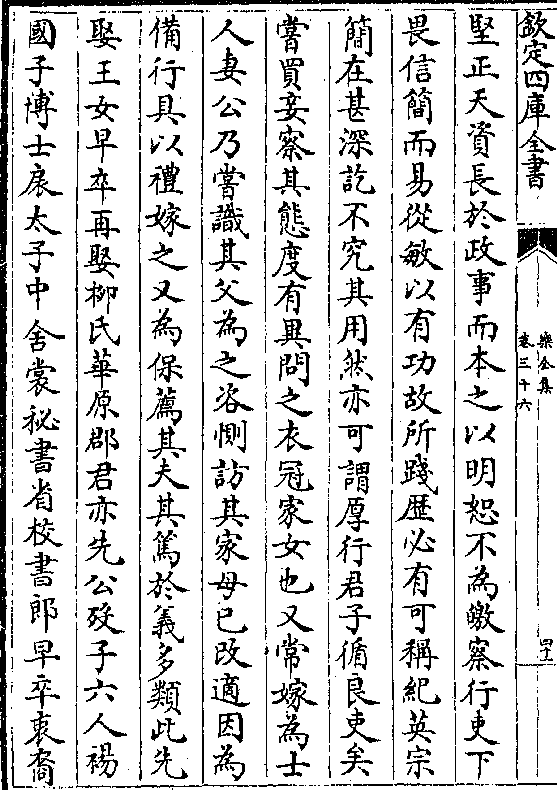 欽定四庫全書
樂全集
卷三十六
堅正天資長於政事而本之以明恕不為皦察行吏下
畏信簡而易從敏以有功故所踐歴必有可稱紀英宗
簡在甚深訖不究其用然亦可謂厚行君子循良吏矣
嘗買妾察其態度有異問之衣冠家女也又常嫁為士
人妻公乃嘗識其父為之咨惻訪其家母已改適因為
備行具以禮嫁之又為保薦其夫其篤於義多類此先
娶王女早卒再娶柳氏華原郡君亦先公歿子六人裼
國子博士扆太子中舍裳秘書省校書郎早卒衷裔